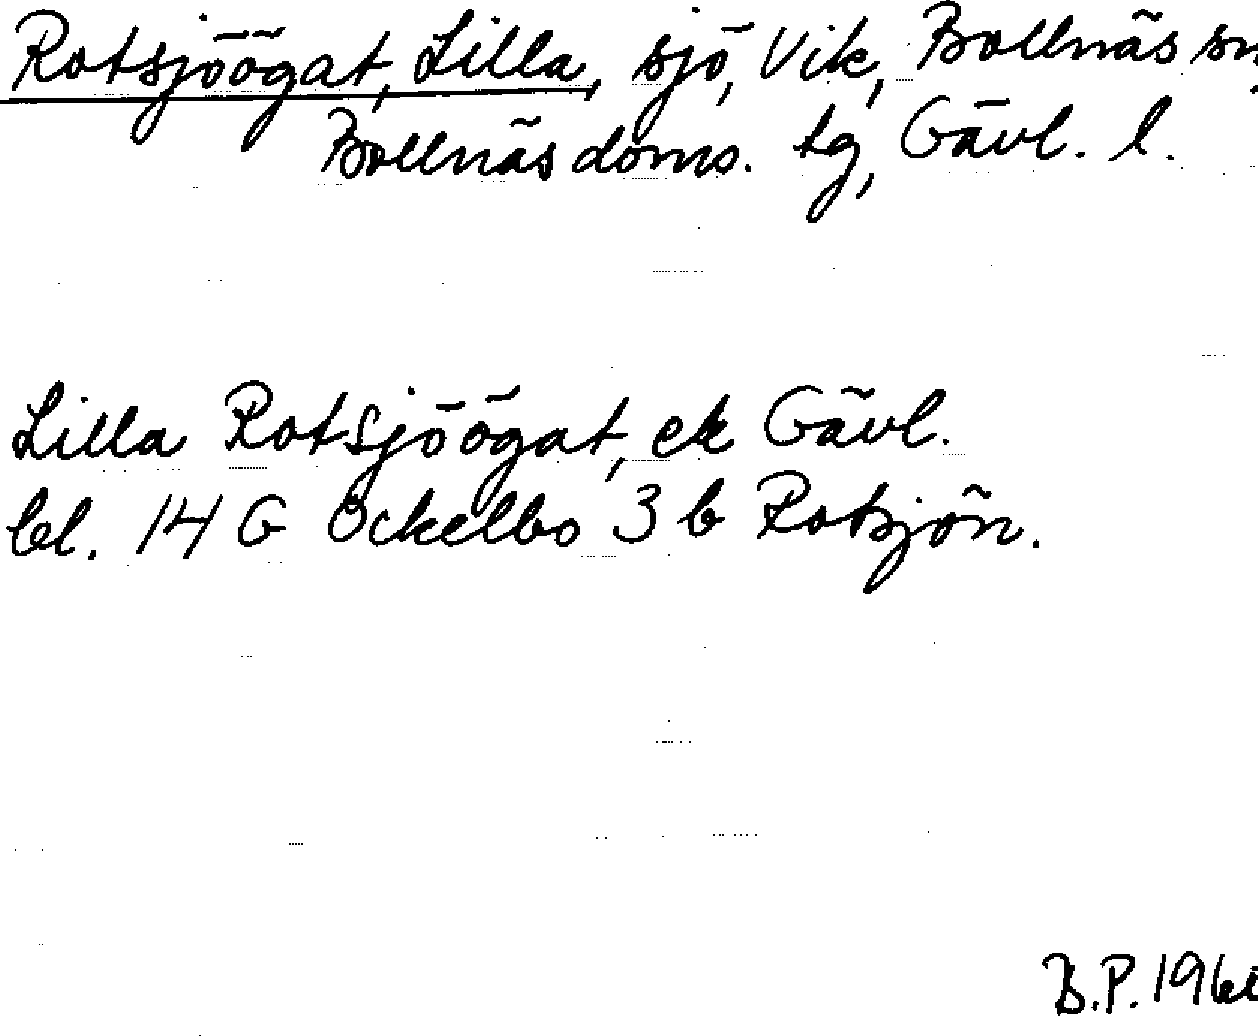 Rotsjöögat, Lilla, sjö, Vik, Bollnäs sn,
Bollnäs doms. tg, Gävl. l.
Lilla Rotsjöögat, ek Gävl.
bl. 14 G Ockelbo 3 b Rotsjön.
B.P.